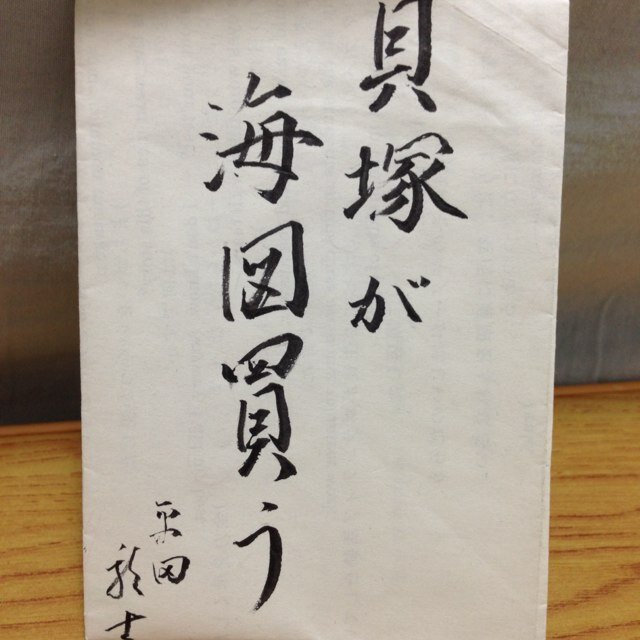 貝塚が
海図買う
平田